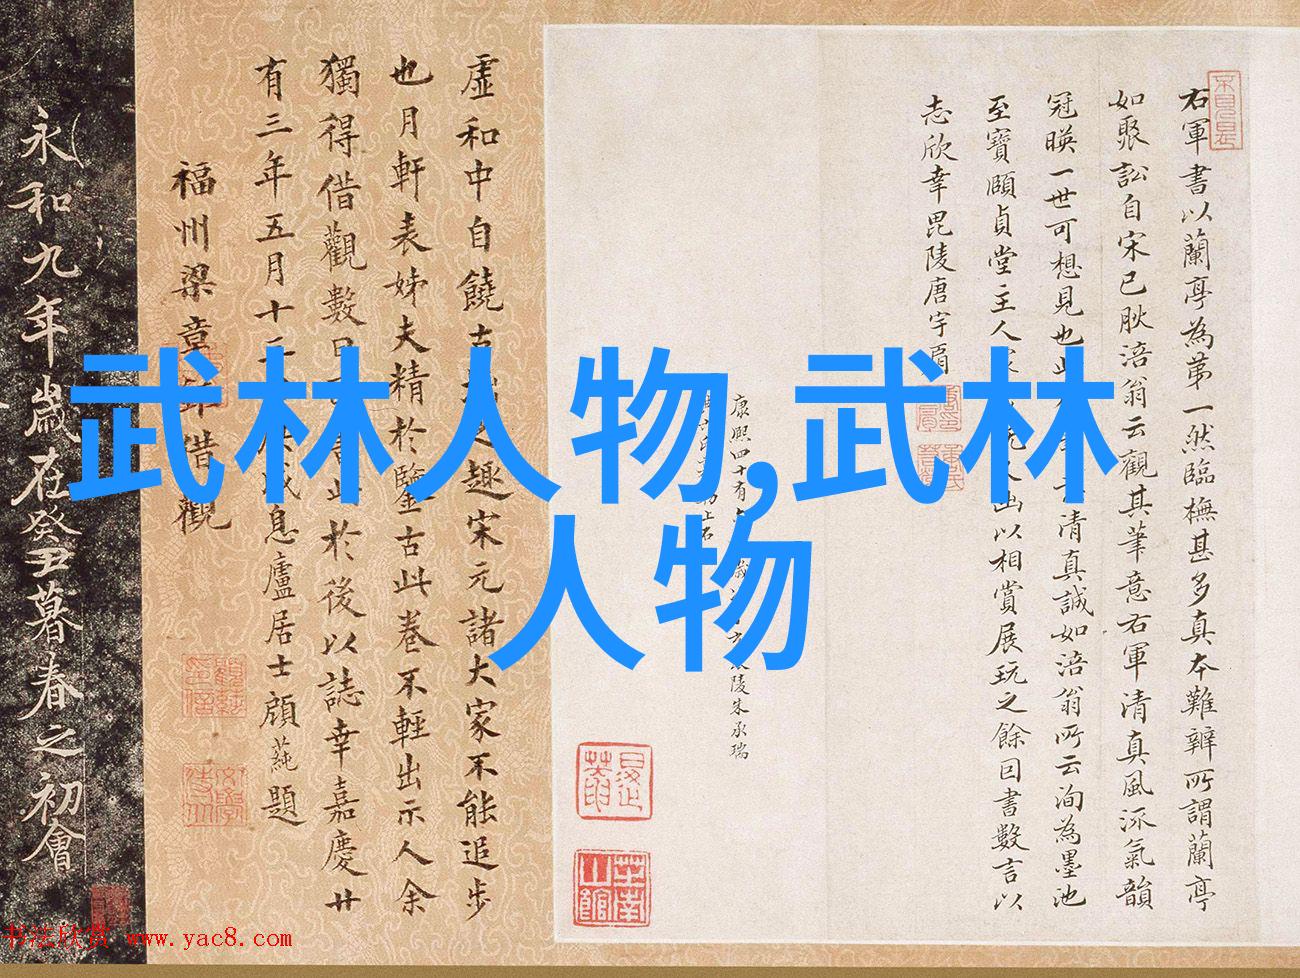 武林人物,武林
人物
右軍書以蘭亭為第一然臨橅甚多真本難辨所謂蘭亭
如聚訟自宋已耿涪翁云觀其筆意右軍清真風流氣韻
冠暎一世可想見也此
清真誠如涪翁所云洵為墨池
至寶頤貞堂主人
出以相賞展玩之餘因書數言以
志欣幸毘陵唐宇肩
康熙四十有
陵朱承瑞
虛和中自饒古
趣宋元諸大家不能追步
也月軒表姊夫精於鑒古此卷不輕出示人余
獨得借觀數日
於後以誌幸嘉慶廿
有三年五月十
息廬居士顧蒓題
福州梁章
借觀
永和九年歲在癸丑暮春之初會
书法欣赏 www.yac8.com